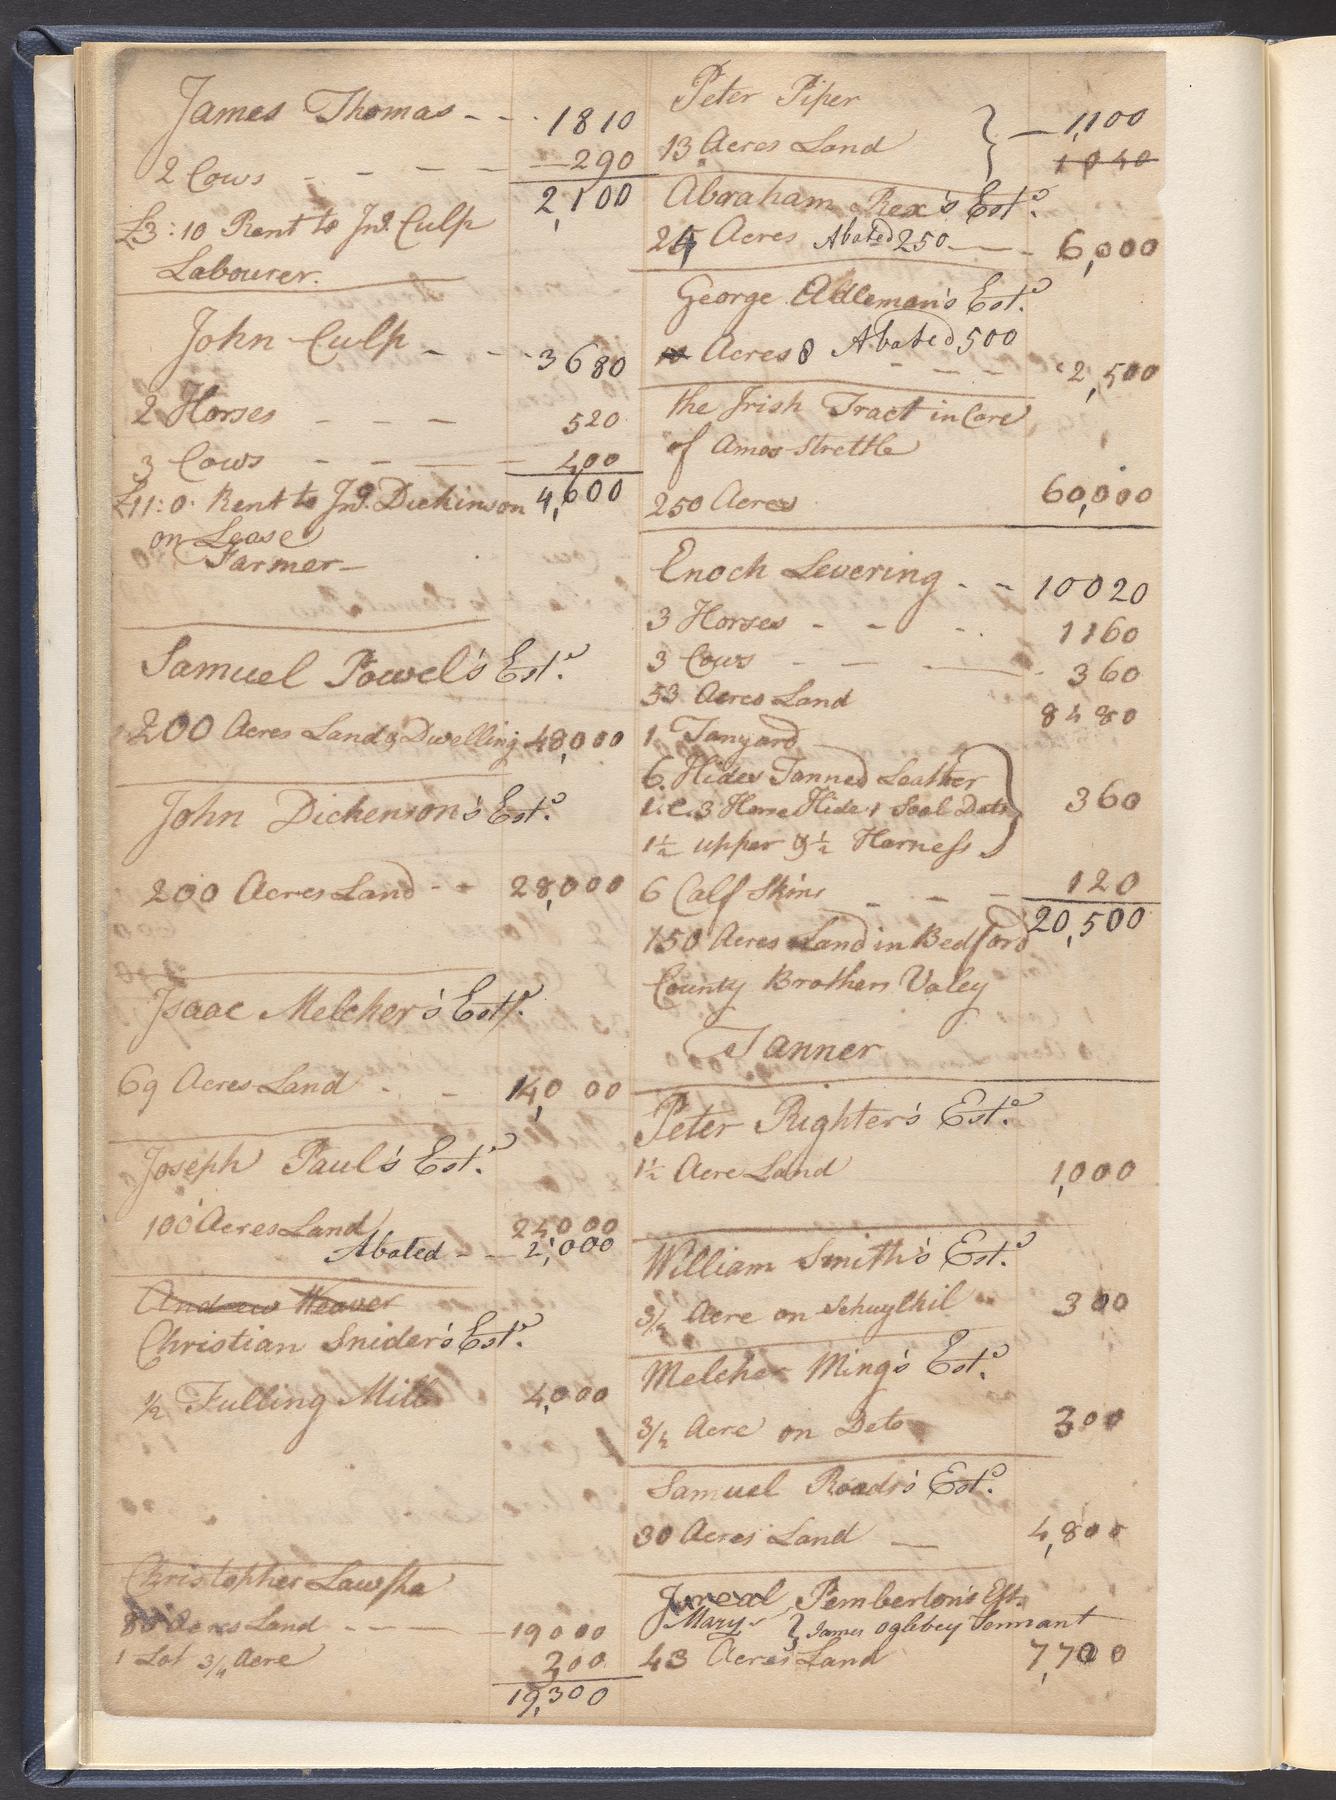 James Thomas - - - 1810
2 Cows - - - - 290
2,100
£3:10 Rent to Jno. Culp
Labourer.
John Culp - - - 3680
2 Horses - - - 520
3 Cows - - 400
£11:0. Rent to Jno. Dickinson 4,600
on Lease
Farmer -
Samuel Powel's Este.
200 Acres Land & Dwelling 48,000
John Dickenson's Este.
200 Acres Land - - 28,000
Isaac Melcher's Este.
69 Acres Land - - 14,000
Joseph Paul's Este.
100 Acres Land 24000
Abated - - 2,000
Andrew Weaver
Christian Snider's Este.
1/2 Fulling Mill 4,000
Christopher Lawsha
Acres Land - - - - 19000
1 Lot 3/4 Acre 300
19,300
Peter Piper
13 Acres Land } - 1,100
1040
Abraham Rex's Este.
Acres Abated 250 - - - 6,000
George Adleman's Este.
Acres 8 Abated 500
- - - 2,500
the Irish Tract in Care
of Amos Strettle
250 Acres 60,000
Enoch Levering - - 10020
3 Horses - - - 1160
3 Cows - - - 360
53 Acres Land 8480
1 Tanyard
6. Hides Tanned Leather
1.C.3 Horse Hide 1 Seal Deto } 360
1 1/2 upper & 1/2 Harness
6 Calf Skins - - - 120
20,500
150 Acres Land in Bedford
County Brothers Valey
Tanner
Peter Righter's Este.
1 1/2 Acre Land 1,000
William Smith's Este.
3/4 Acre on Schuylkil 300
Melcher Ming's Este.
3/4 Acre on Deto 300
Samuel Roads's Este.
30 Acres Land - 4,800
Pemberton's Est.
Mary } James Oglebey Tennant
43 Acres Land 7,700